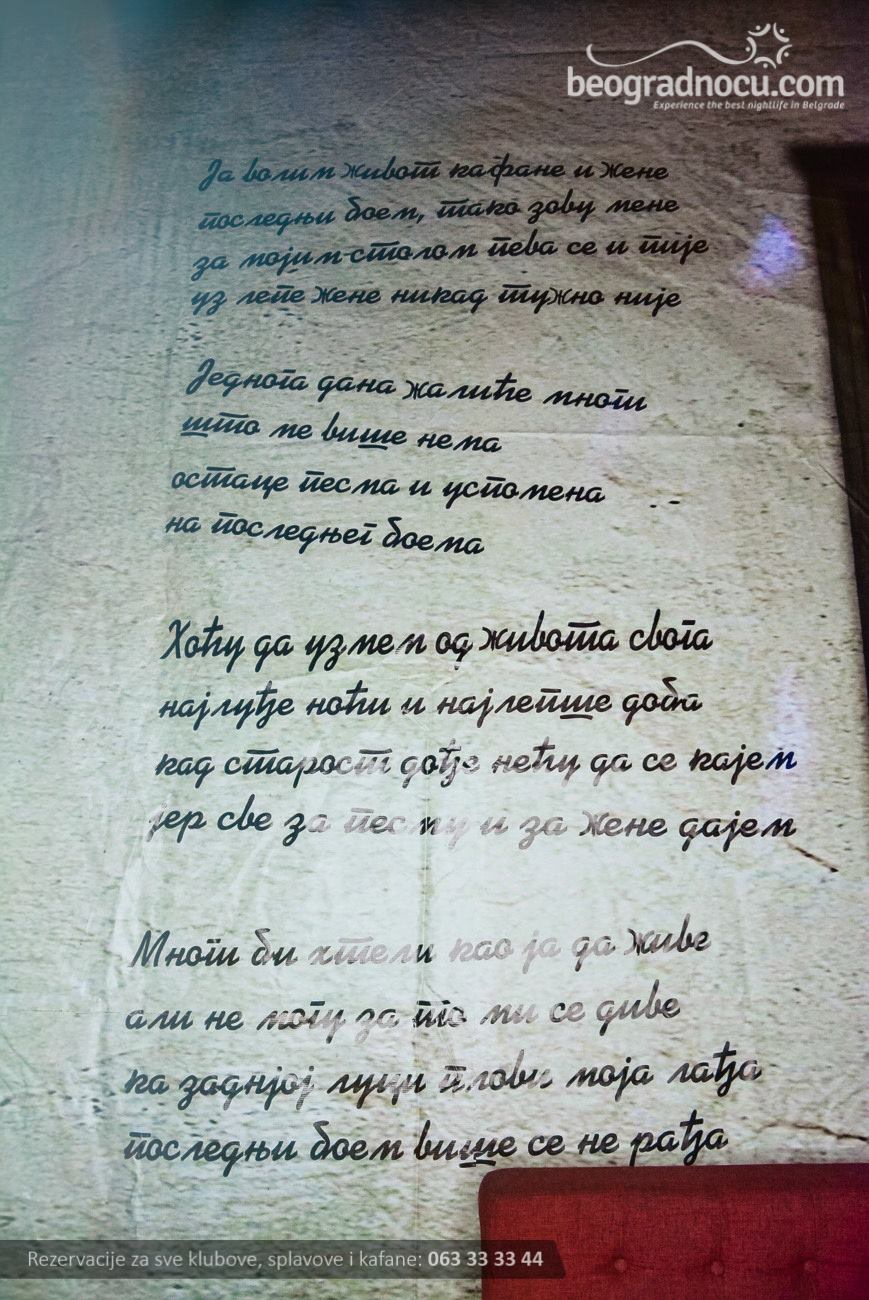 beogradnocu.com
Experience the best nightlife in Belgrade
Ја волим живот кафане и жене
последњи боем, тако зову мене
за мојим столом пева се и пије
уз лепе жене никад тужно није
Једнога дана жалиће многи
што ме више нема
остаце песма и успомена
на последњег боема
Хоћу да узмем од живота свога
најлуђе ноћи и најлепше доба
кад старост дође нећу да се кајем
јер све за песму и за жене дајем
Многи би хтели као ја да живе
али не могу за то ми се диве
ка заднјој луци плови моја лађа
последњи боем више се не рађа
Rezervacije za sve klubove, splavove i kafane: 063 33 33 44